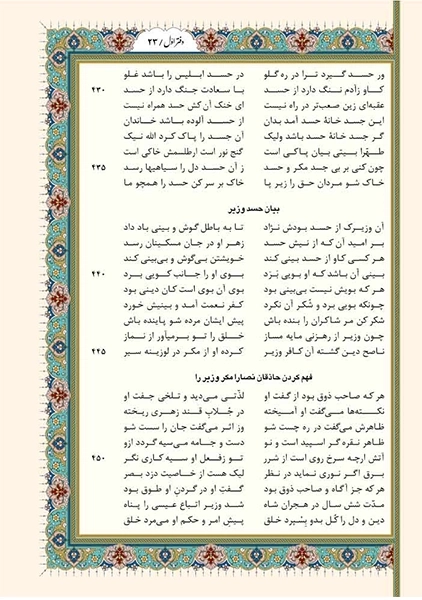 دفتر اول / ۲۳
ور حسد گیرد تـرا در ره گلو در حسـد ابـلیس را باشد غلو
کـاو زآدم نـنگ دارد از حسـد با سـعادت جـنگ دارد از حسـد ۴۳۰
عقبه‌ای زین صعب‌تر در راه نیست ای خنک آن کش حسد همراه نیست
این جسـد خانهٔ حسـد آمـد بدان از حسـد آلوده بـاشد خـانـدان
گر جسـد خـانهٔ حسـد باشد ولیک آن جسـد را پاک کـرد الله نـیک
طـهّرا بـیتی بـیان پـاکـی است گنج نور است ارطلسمش خاکی است
چون کنی بر بی جسد مکر و حسد ز آن حسـد دل را سـیاهیها رسـد ۴۳۵
خـاک شـو مردان حـق را زیر پا خاک بر سر کن حسد را همچو ما
بیان حسد وزیر
آن وزیـرک از حسـد بودش نـژاد تـا بـه باطل گوش و بینی باد داد
بر امـید آن کـه از نـیش حسـد زهـر او در جـان مسکـینان رسـد
هر کسـی کـاو از حسـد بینی کند خویشتن بی‌گوش و بی‌بینی کـند
بینی آن باشد کـه او بویی بَـرَد بـوی او را جـانب کـویی بـرد ۴۴۰
هر کـه بویش نیست بی‌بینی بود بوی آن بوی است کان دینی بود
چونکه بویی برد و شُکر آن نکرد کفر نـعمت آمـد و بینیش خورد
شکر کن مر شاکران را بنده باش پیش ایشان مرده شو پاینده باش
چون وزیر از رهزنی مایه مسـاز خـلق را تـو بـرمیآور از نـماز
ناصح دیـن گشته آن کـافر وزیـر کـرده او از مکـر در لوزینه سـیر ۴۴۵
فهم کردن حاذقان نصارا مکر وزیر را
هر که صاحب ذوق بود از گـفت او لذّتـی مـی‌دید و تـلخی جـفت او
نکـته‌ها مـی‌گفت او آمـیخته در جُـلابِ قـند زهـری ریـخته
ظاهرش می‌گفت در ره چست شو وز اثـر مـی‌گفت جان را سست شو
ظـاهر نـقره گـر اسـپید است و نو دست و جامه می‌سیه گردد ازو
آتش ارچـه سرخ روی است از شرر تـو زفـعل او سـیه کاری نگر ۴۵۰
برق اگـر نـوری نمـاید در نـظر لیک هست از خـاصیت دزد بـصر
هر که جز آگاه و صاحب ذوق بود گـفتِ او در گـردنِ او طـوق بود
مـدّت شش سال در هـجران شاه شـد وزیـر اتـباع عـیسی را پـناه
دیـن و دل را کُـل بدو بسْـپرد خلق پیشِ امر و حکـم او می‌مرد خلق